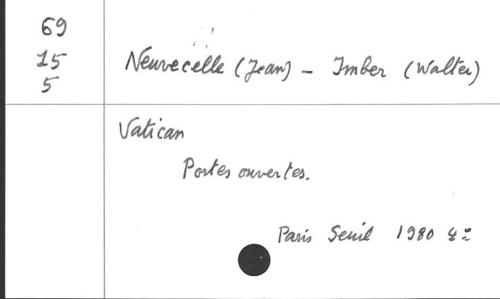 69
15
5
Neuvecelle (Jean) - Imber (Walter)
Vatican
Portes ouvertes.
Paris Seuil 1980 4º